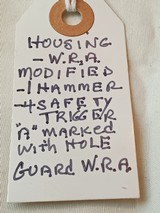 HOUSING
- W.R.A.
MODIFIED
- 1 HAMMER
- + SAFETY
TRIGGER
"A" MARKED
WITH HOLE
GUARD W.R.A.